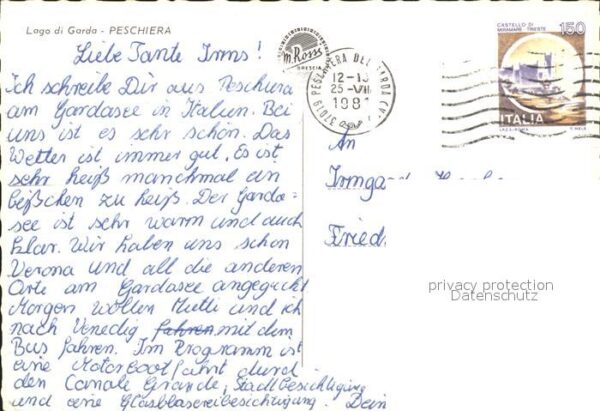 Lago di Garda - PESCHIERA
Liebe Tante Irms!
Ich schreibe Dir aus Peschiera
am Gardasee in Italien. Bei
uns ist es sehr schön. Das
Wetter ist immer gut. Es ist
sehr heiß manchmal ein
bißchen zu heiß. Der Garda-
see ist sehr warm und auch
klar. Wir haben uns schon
Verona und all die anderen
Orte am Gardasee angeguckt
Morgen wollen Mutti und ich
nach Venedig fahren mit dem
Bus fahren. Im Programm ist
eine Motorbootfahrt durch
den Canale Grande, Stadtbesichtigung
und eine Glasbläsereibesichtigung. Dein
m. Rossi
BRESCIA
37019 PESCHIERA DEL GARDA
12-1
25-VII
1981
CASTELLO DI
MIRAMARE TRIESTE
150
ITALIA
I.P.Z.S.-ROMA
An
Irmgard
Fried
privacy protection
Datenschutz